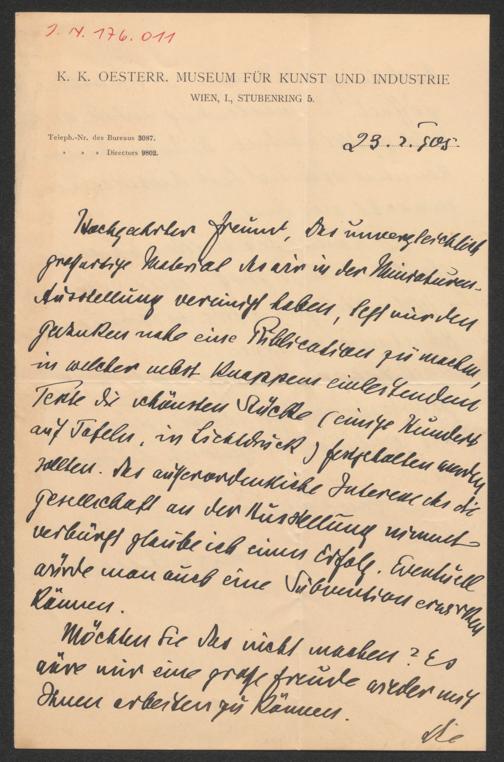 J. N. 176.011
K. K. OESTERR. MUSEUM FÜR KUNST UND INDUSTRIE
WIEN, I., STUBENRING 5.
Teleph.-Nr. des Bureaus 3087.
" " " Directors 9802.
23. 2. 905.
Hochgeehrter Freund, das unvergleichlich
großartige Material das wir in der Miniaturen-
Ausstellung vereinigt haben, legt mir den
Gedanken nahe eine Publication zu machen,
in welcher nebst knappem einleitendem
Texte die schönsten Stücke (einige Hundert
auf Tafeln, in Lichtdruck) festgehalten werden
sollten. Das außerordentliche Interesse das die
Gesellschaft an der Ausstellung nimmt
verbürgt glaube ich einen Erfolg. Eventuell
würde man auch eine Subvention erwirken
können.
Möchten Sie das nicht machen? Es
wäre mir eine große Freude wieder mit
Ihnen arbeiten zu können.
Die